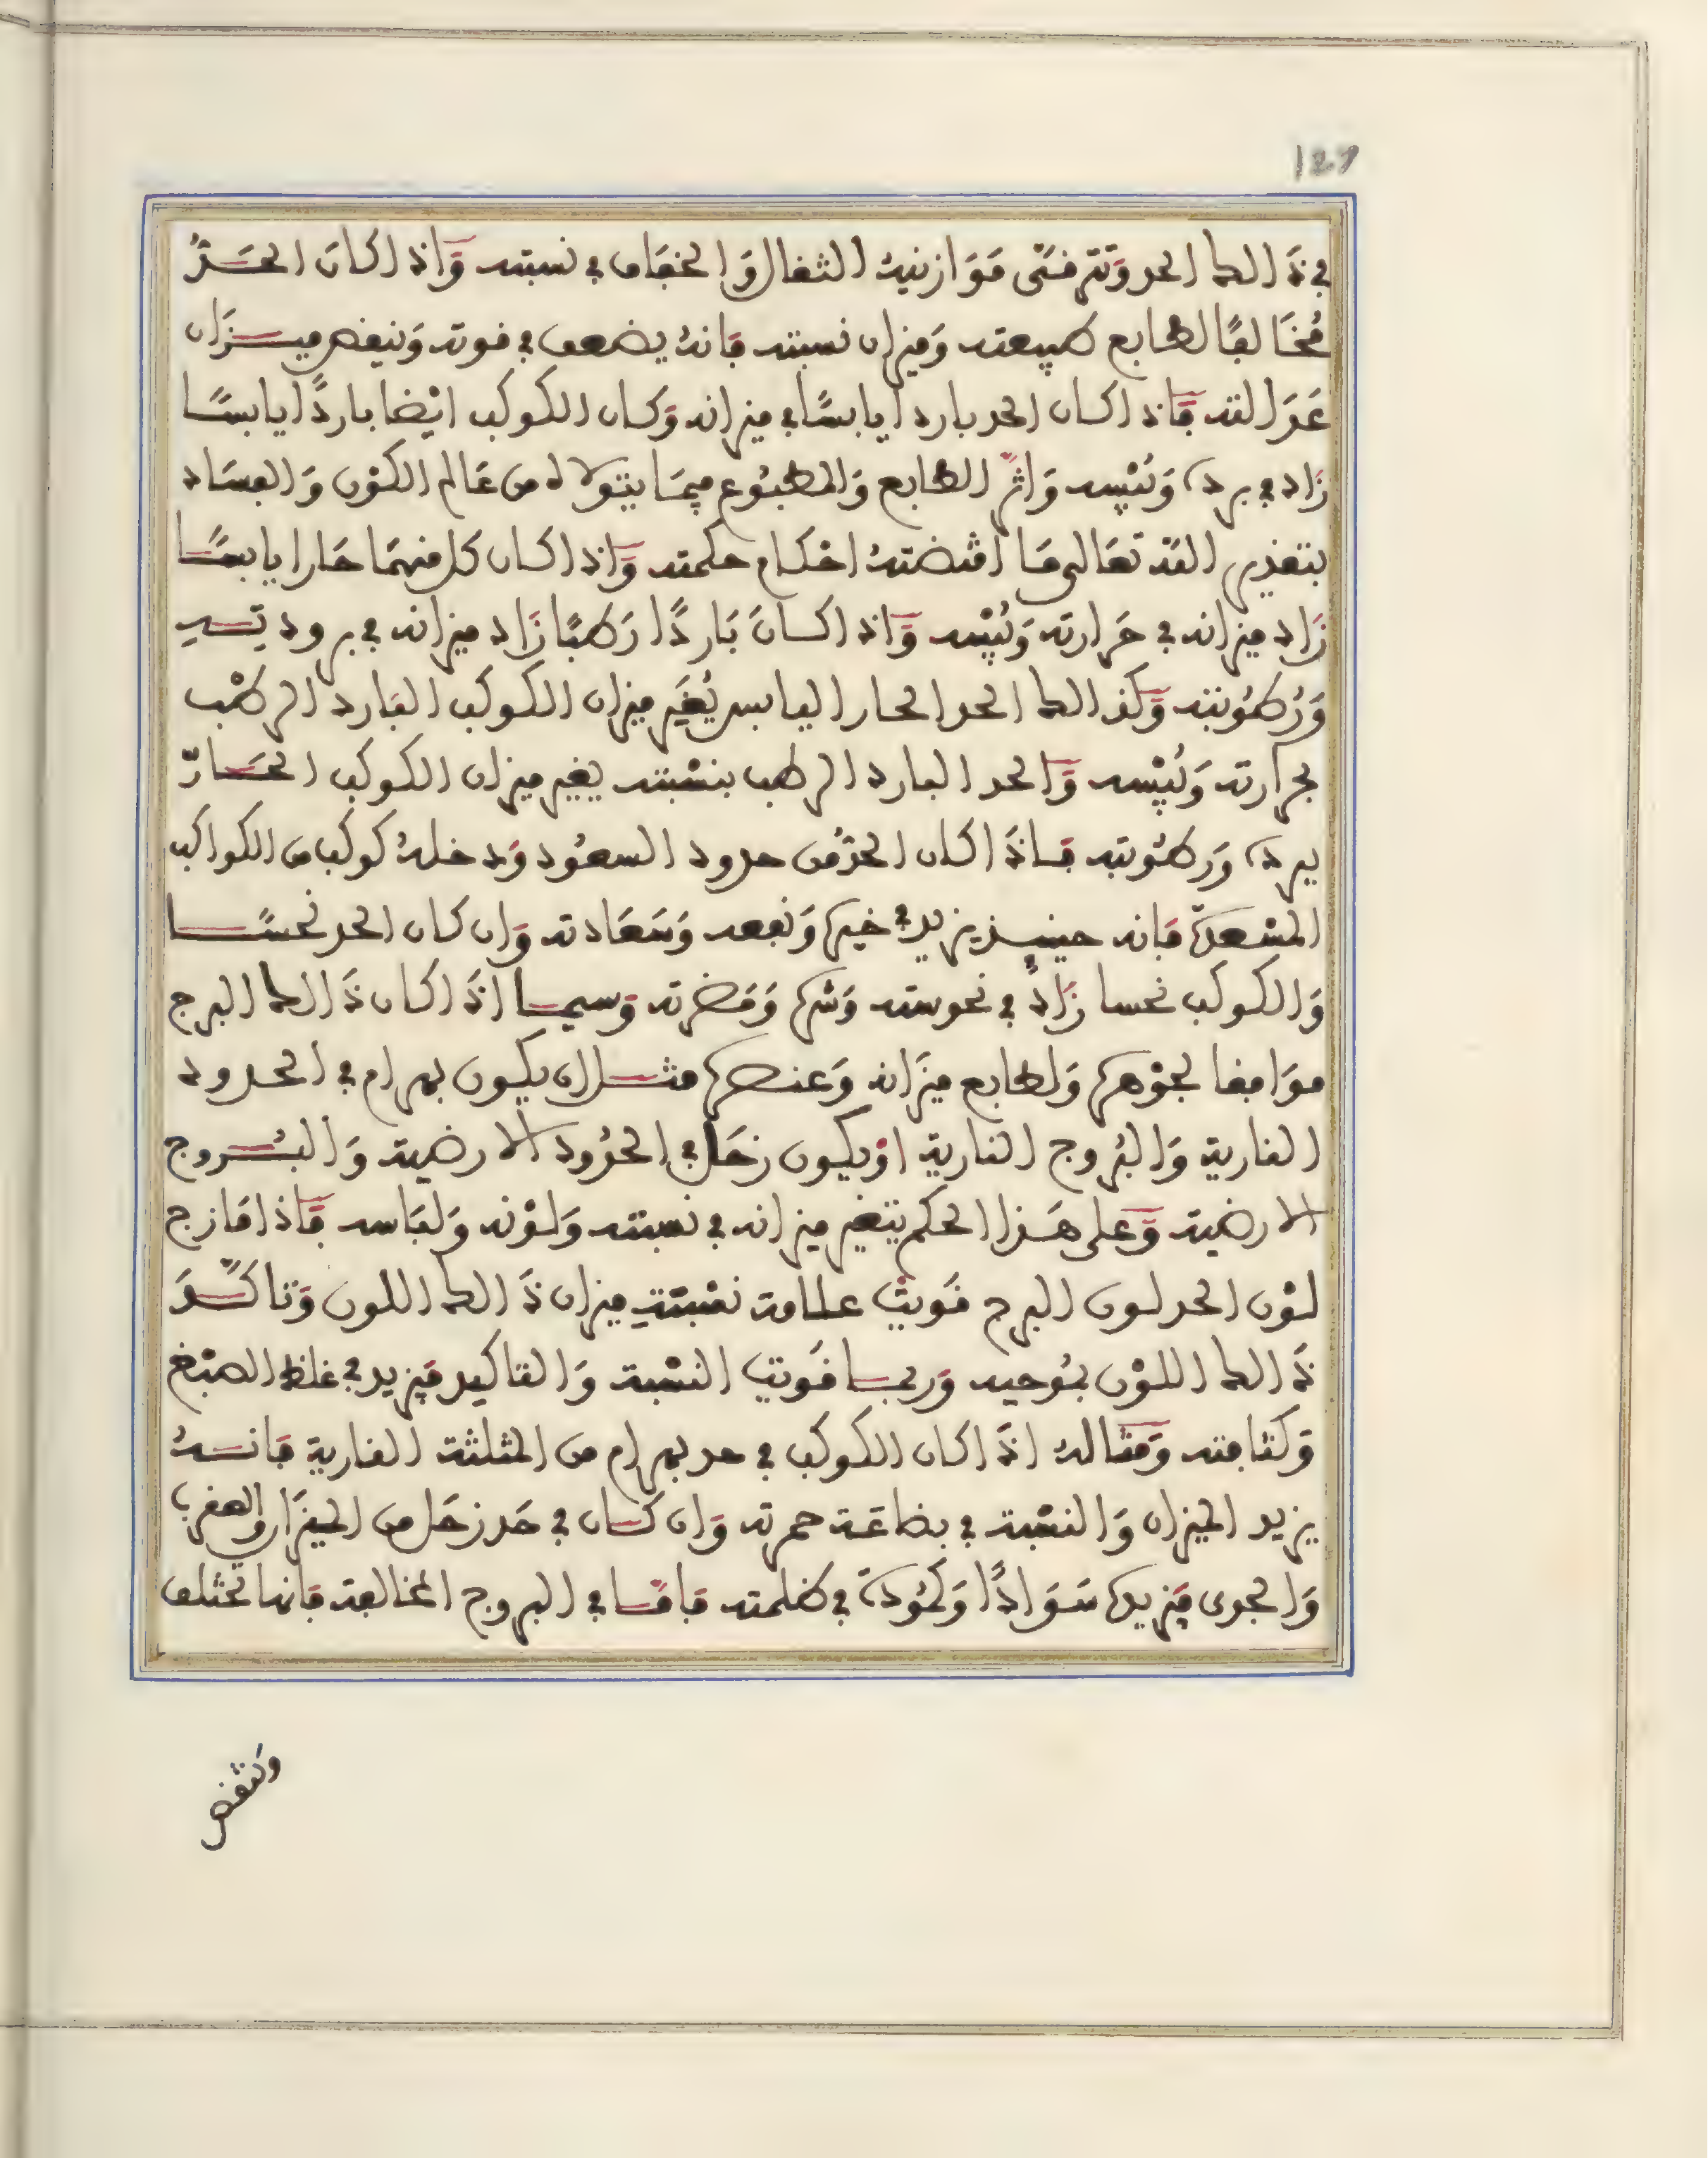 127
في ذَالك الحد وَتترقى مَوَازنيهُ الثقال وَالخفَاف في نسبته وَإذا كانَ الحَدُّ
مُخَالفًا لطابع طبيعته وَميزان نسبته فَانهُ يضعف في قوته وَينقص ميزَان
عَدَالته فَإذا كان الحد باردا يابسًا في ميزانه وَكان الكوكب ايْضا باردًا يابسًا
زَاد في برده وَيُبْسه وَاثر الطابع وَالمطبُوع فيمَا يتولاه من عَالم الكوْن وَالفسَاد
بتقدير الله تعَالى مَا اقتضتهُ احْكام حكمته وَإذا كان كل منهمَا حَارا يابسًا
زَاد ميزانه في حَرارته وَيُبْسه وَإذا كانَ بَاردًا رَطبًا زَاد ميزانه في برودته
وَرُطوُبته وَكذالك الحد الحار اليابس يُغيَر ميزان الكوكب البَارد الرطْب
بحرارته وَيُبْسه وَالحد البارد الرطب بنسْبته يغير ميزان الكوكب الحَارّ
ببرده وَرطُوبته فَإذَا كان الحدُّ من حدود السعُود وَدخلهُ كوكب من الكواكب
المسْعدة فَانه حينيذ يزيد في خيره وَنفعه وَسَعَادته وَان كان الحد نحسًا
وَالكوكب نحسا زَادَ في نحوسته وَشره وَمَضرته وَسيما اذَا كان ذَالك البرج
موَافقا لجوْهره وَلطابع ميزَانه وَعنصره مثل ان يكون بهرام في الحدود
النارية وَالبُروج النارية اوْ يكون زحَل في الحدُود الارضية وَالبُروج
الارضية وَعلى هَذا الحكم يتغير ميزانه في نسبته وَلوْنه وَلبَاسه فَإذا مَازج
لوْن الحد لون البرج قَويتْ علامة نسْبَتهِ ميزان ذَالك اللون وَتاكَّدَ
ذَالك اللوْن بمُوحيه وَربما قَويت النسْبة وَالتاكيد فيَزيد في غلظ الصبْغ
وَكثافته وَمثالهُ اذَا كان الكوكب في حد بهرام من المثلثة النارية فَانهُ
يزيد الميزان وَالنسْبة في بضاعَة حمرته وَان كان في حَد زحَل من الميزَان والعقرب
وَالجدى فيَزيده سَوَادًا وَكمُودَة في ظلمته فَامَّا في البروج المخالفة فَانها تختلف
وتنقص